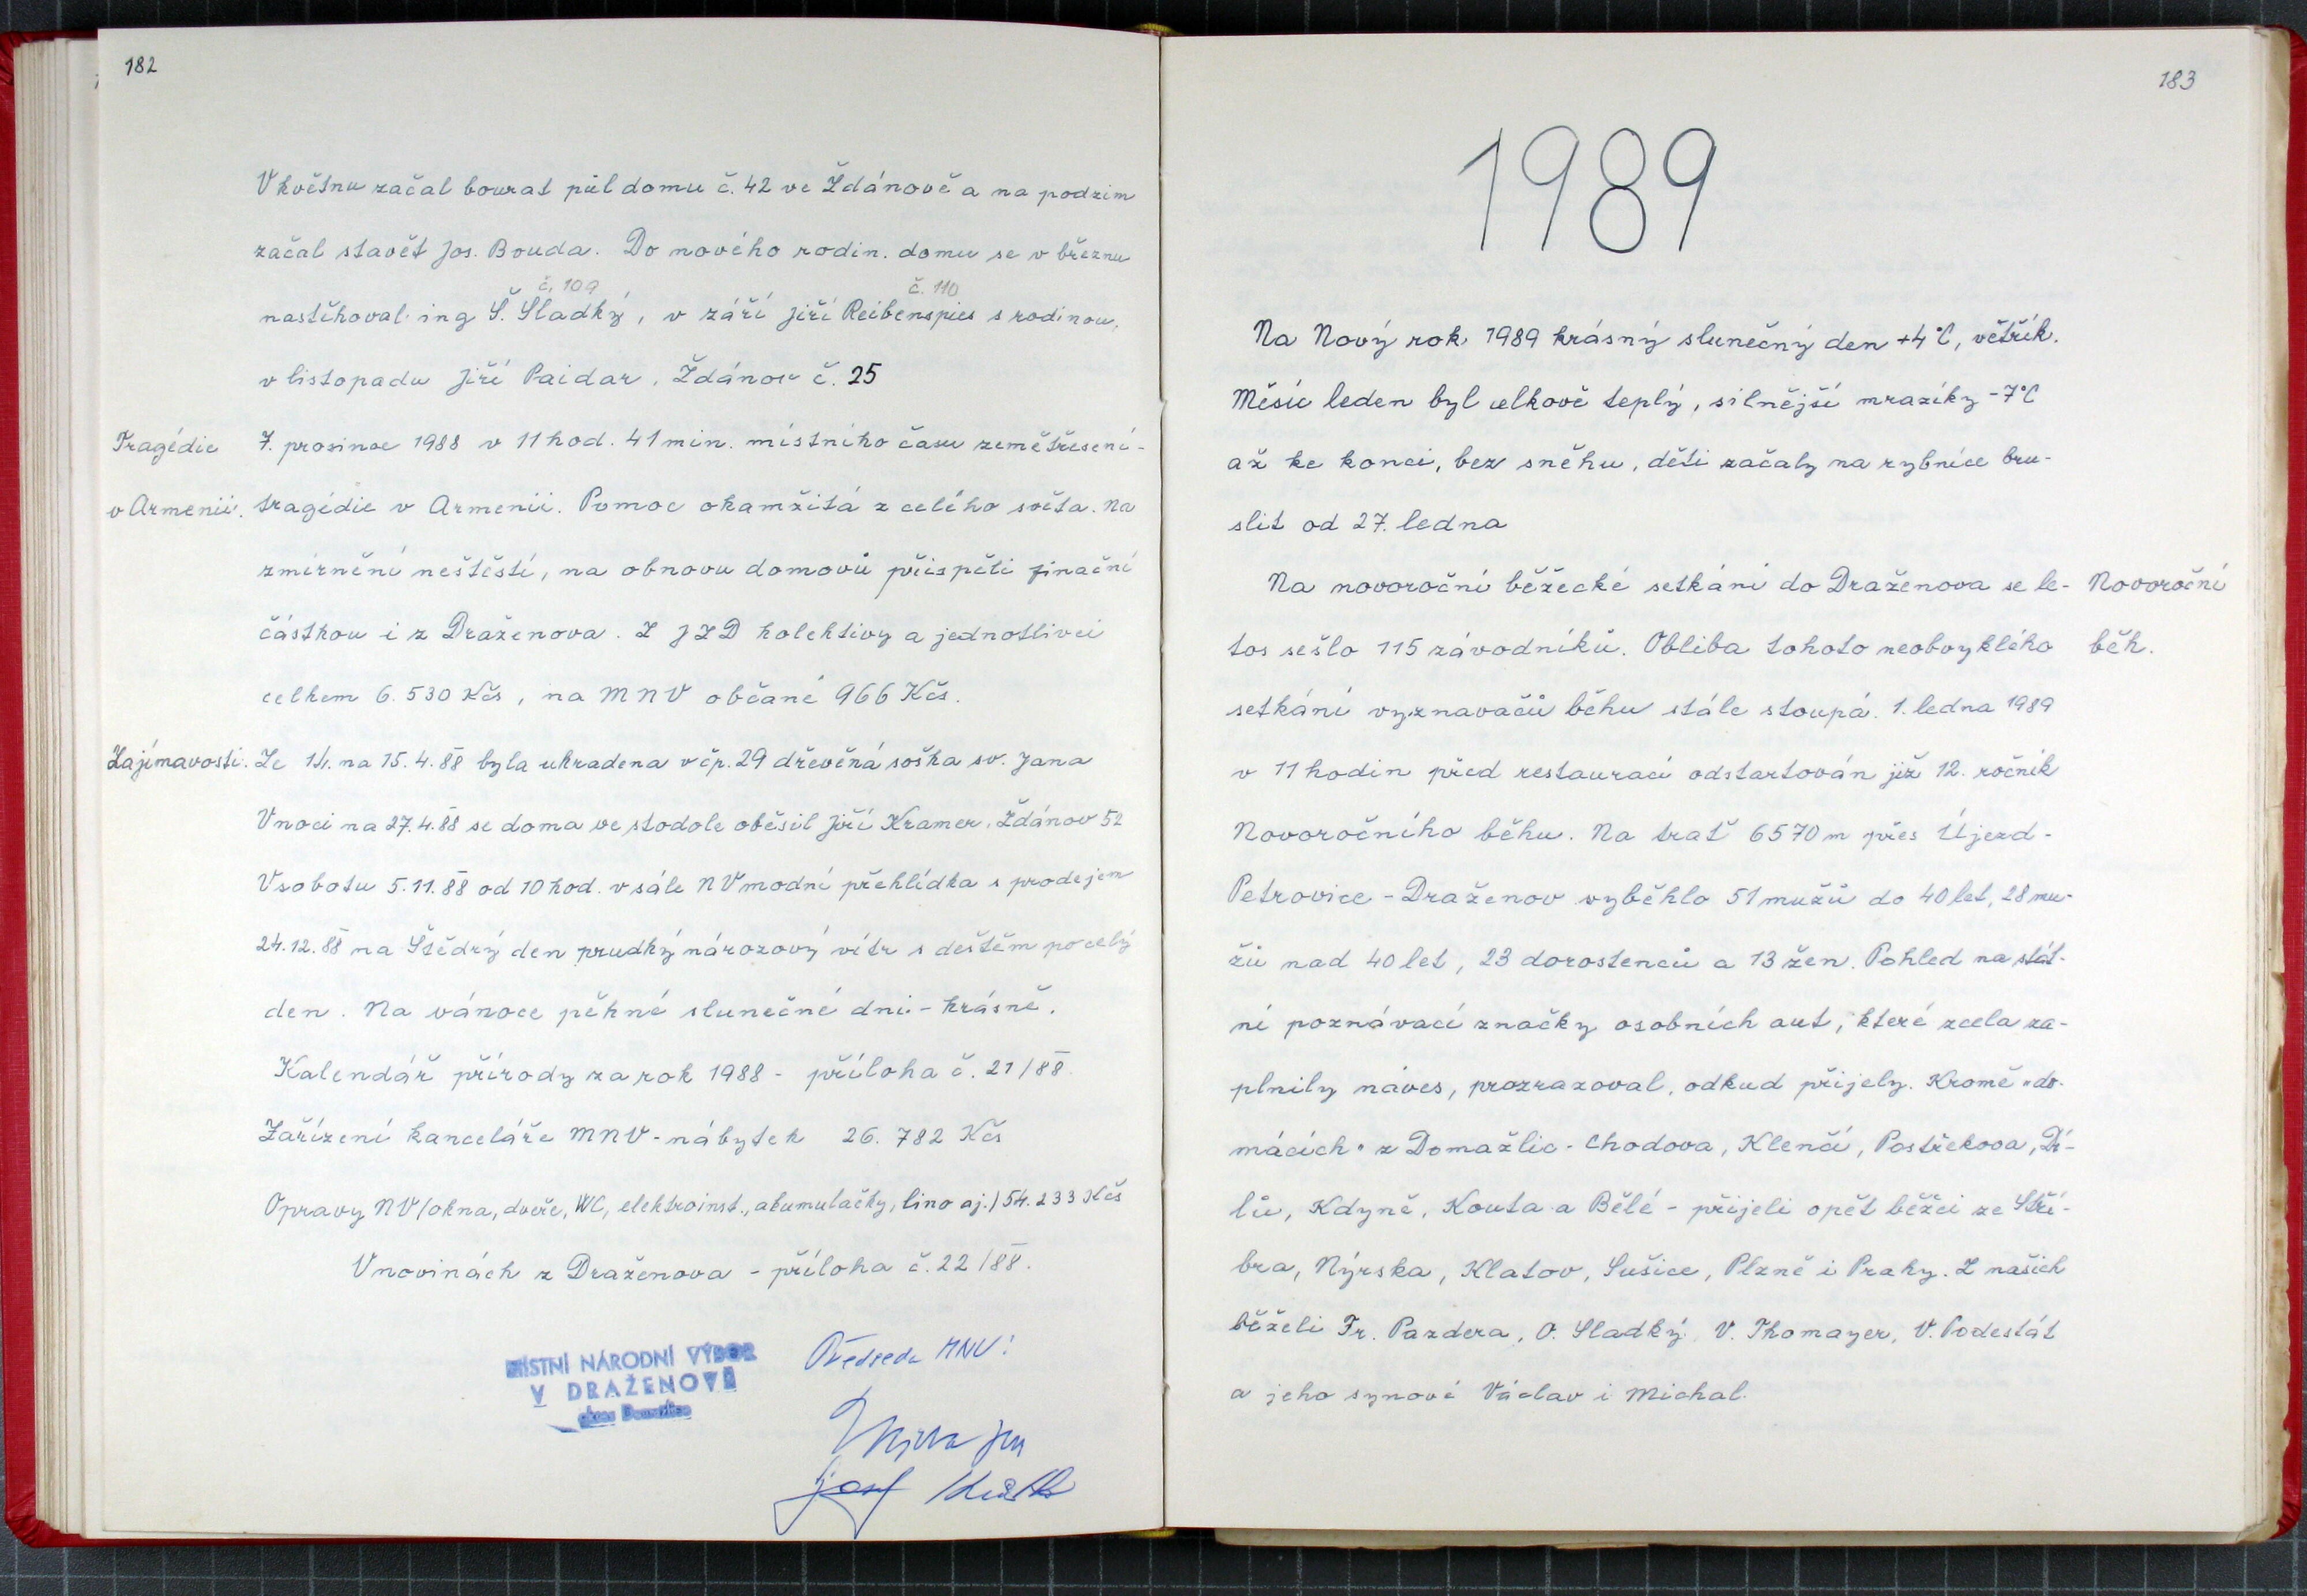 182
V květnu začal bourat půl domu č. 42 ve Ždánově a na podzim
začal stavět Jos. Bouda. Do nového rodin. domu se v březnu
č. 109 č. 110
nastěhoval ing Š. Sladký, v září Jiří Reibenspies s rodinou,
v listopadu Jiří Paidar, Ždánov č. 25
Tragédie 7. prosince 1988 v 11 hod. 41 min. místního času zemětřesení-
v Armenii. tragédie v Armenii. Pomoc okamžitá z celého světa. Na
zmírnění neštěstí, na obnovu domovů přispěti finační
částkou i z Draženova. Z JZD kolektivy a jednotlivci
celkem 6.530 Kčs, na MNV občané 966 Kčs.
Zajímavosti. Ze 14. na 15.4.88 byla ukradena v čp. 29 dřevěná soška sv. Jana
V noci na 27.4.88 se doma ve stodole oběsil Jiří Kramer, Ždánov 52
V sobotu 5.11.88 od 10 hod. v sále NV modní přehlídka s prodejem
24.12.88 na Štědrý den prudký nározový vítr s deštěm po celý
den. Na vánoce pěkné slunečné dni - krásné.
Kalendář přírody za rok 1988 - příloha č. 21/88.
Zařízení kanceláře MNV - nábytek 26.782 Kčs
Opravy NV /okna, dveře, WC, elektroinst., akumulačky, lino aj./ 54.233 Kčs
V novinách z Draženova - příloha č. 22/88.
MÍSTNÍ NÁRODNÍ VÝBOR
V DRAŽENOVĚ
okres Domažlice
Předseda MNV:
Josef
183
1989
Na Nový rok 1989 krásný slunečný den +4°C, větřík.
Měsíc leden byl celkově teplý, silnější mrazíky -7°C
až ke konci, bez sněhu, děti začaly na rybníce bru-
slit od 27. ledna
Na novoroční běžecké setkání do Draženova se le- Novoroční
tos sešlo 115 závodníků. Obliba tohoto neobvyklého běh.
setkání vyznavačů běhu stále stoupá. 1. ledna 1989
v 11 hodin před restaurací odstartován již 12. ročník
Novoročního běhu. Na trať 6570 m přes Újezd-
Petrovice - Draženov vyběhlo 51 mužů do 40 let, 28 mu-
žů nad 40 let, 23 dorostenců a 13 žen. Pohled na stát-
ní poznávací značky osobních aut, které zcela za-
plnily náves, prozrazoval, odkud přijely. Kromě "do-
mácích" z Domažlic - Chodova, Klenčí, Postřekova, Dí-
lů, Kdyně, Kouta a Bělé - přijeli opět běžci ze Stří-
bra, Nýrska, Klatov, Sušice, Plzně i Prahy. Z našich
běželi Fr. Pazdera, O. Sladký, V. Thomayer, V. Podestát
a jeho synové Václav i Michal.